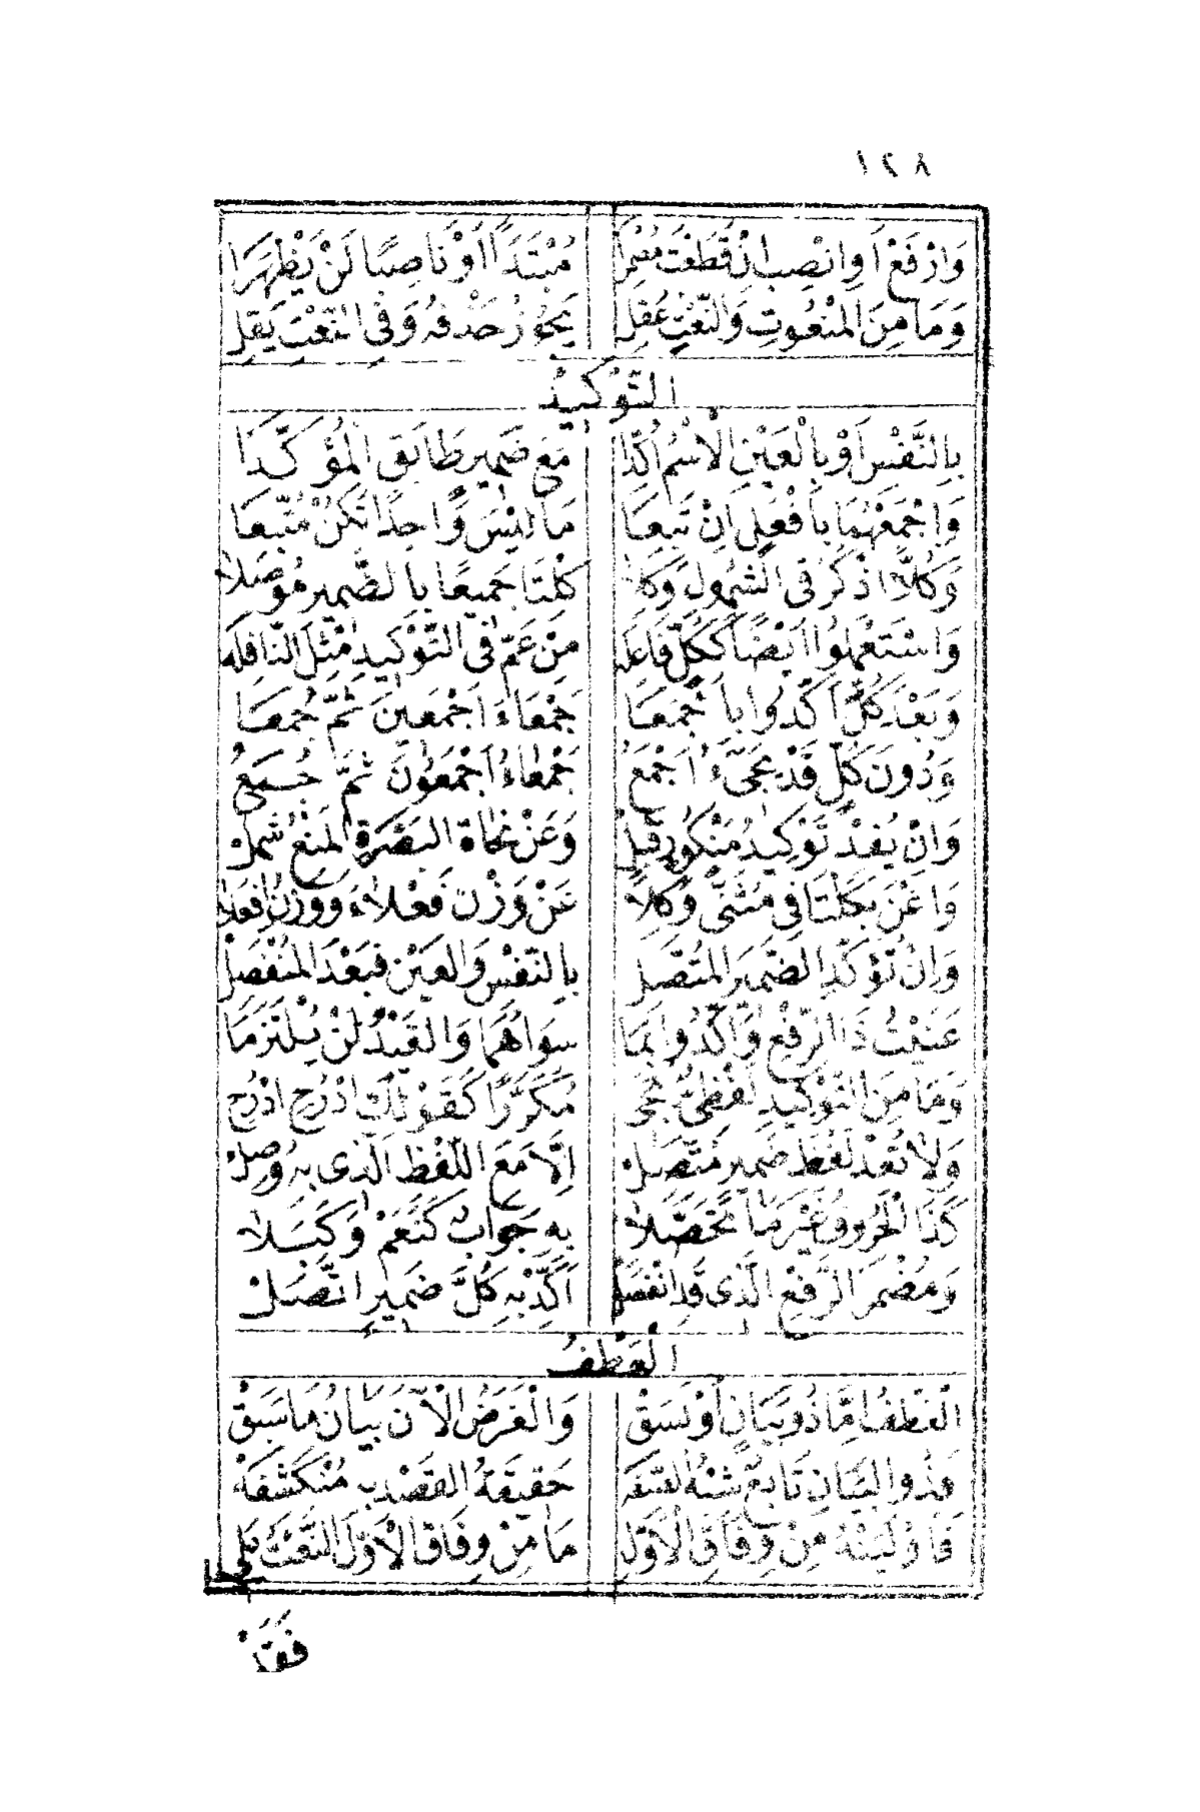 ١٢٨
وَارْفَعْ أَوِ انْصِبْ إِنْ قَطَعْتَ مُضْمِرَا مُبْتَدَأً أَوْ نَاصِبًا لَنْ يَظْهَرَا
وَمَا مِنَ الْمَنْعُوتِ وَالنَّعْتِ عُقِلْ يَجُوزُ حَذْفُهُ وَفِي النَّعْتِ يَقِلْ
التَّوْكِيدُ
بِالنَّفْسِ أَوْ بِالْعَيْنِ الْاِسْمُ أُكِّدَا مَعَ ضَمِيرٍ طَابَقَ الْمُؤَكَّدَا
وَاجْمَعْهُمَا بِأَفْعُلٍ إِنْ تَبِعَا مَا لَيْسَ وَاحِدًا تَكُنْ مُتَّبِعَا
وَكُلًّا اذْكُرْ فِي الشُّمُولِ وَكِلَا كِلْتَا جَمِيعًا بِالضَّمِيرِ مُوصَلَا
وَاسْتَعْمَلُوا أَيْضًا كَكُلٍّ فَاعِلَه مِنْ عَمَّ فِي التَّوْكِيدِ مِثْلَ النَّافِلَه
وَبَعْدَ كُلٍّ أَكَّدُوا بِأَجْمَعَا جَمْعَاءَ أَجْمَعِينَ ثُمَّ جُمَعَا
وَدُونَ كُلٍّ قَدْ يَجِيءُ أَجْمَعُ جَمْعَاءُ أَجْمَعُونَ ثُمَّ جُمَعُ
وَإِنْ يُفِدْ تَوْكِيدُ مَنْكُورٍ قُبِلْ وَعَنْ نُحَاةِ الْبَصْرَةِ الْمَنْعُ شَمِلْ
وَاغْنَ بِكِلْتَا فِي مُثَنًّى وَكِلَا عَنْ وَزْنِ فَعْلَاءَ وَوَزْنِ أَفْعَلَا
وَإِنْ تُؤَكِّدِ الضَّمِيرَ الْمُتَّصِلْ بِالنَّفْسِ وَالْعَيْنِ فَبَعْدَ الْمُنْفَصِلْ
عَنَيْتُ ذَا الرَّفْعِ وَأَكَّدُوا بِمَا سِوَاهُمَا وَالْقَيْدُ لَنْ يُلْتَزَمَا
وَمَا مِنَ التَّوْكِيدِ لَفْظِيٌّ يَجِي مُكَرَّرًا كَقَوْلِكَ ادْرُجِ ادْرُجِ
وَلَا تُعِدْ لَفْظَ ضَمِيرٍ مُتَّصِلْ إِلَّا مَعَ اللَّفْظِ الَّذِي بِهِ وُصِلْ
كَذَا الْحُرُوفُ غَيْرَ مَا تَحَصَّلَا بِهِ جَوَابٌ كَنَعَمْ وَكَبَلَا
وَمُضْمَرَ الرَّفْعِ الَّذِي قَدِ انْفَصَلْ أَكِّدْ بِهِ كُلَّ ضَمِيرٍ اتَّصَلْ
الْعَطْفُ
الْعَطْفُ إِمَّا ذُو بَيَانٍ أَوْ نَسَقْ وَالْغَرَضُ الْآنَ بَيَانُ مَا سَبَقْ
فَذُو الْبَيَانِ تَابِعٌ شِبْهُ الصِّفَه حَقِيقَةُ الْقَصْدِ بِهِ مُنْكَشِفَه
فَأَوْلِيَنْهُ مِنْ وِفَاقِ الْأَوَّلِ مَا مِنْ وِفَاقِ الْأَوَّلِ النَّعْتُ وَلِي
فَقَدْ